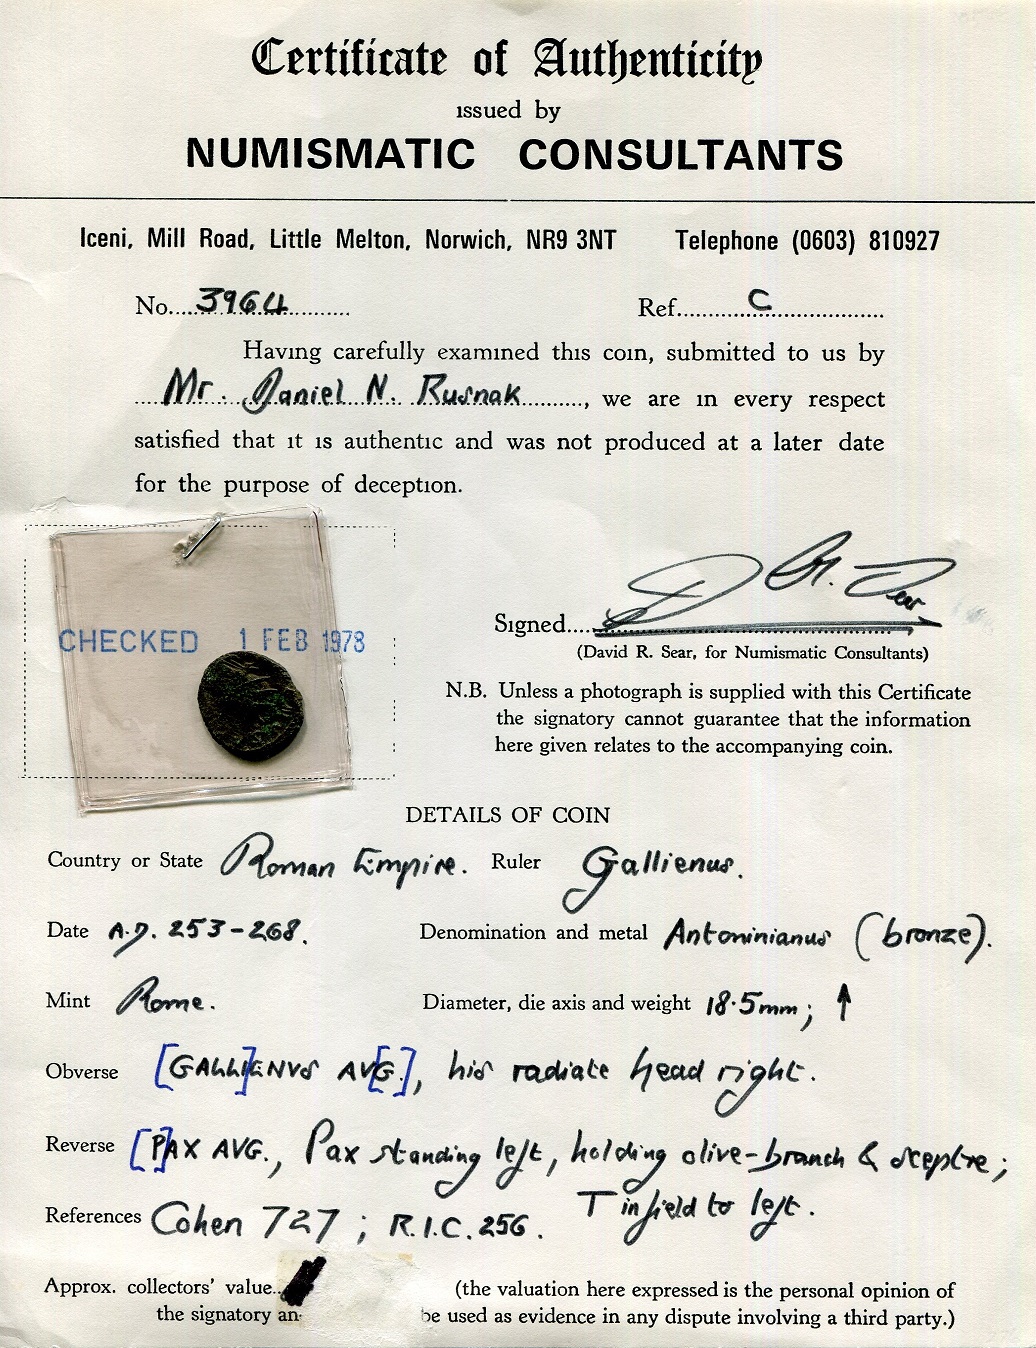 Certificate of Authenticity
issued by
NUMISMATIC CONSULTANTS
Iceni, Mill Road, Little Melton, Norwich, NR9 3NT Telephone (0603) 810927
No. 3964 Ref. C
Having carefully examined this coin, submitted to us by
Mr. Daniel N. Rusnak, we are in every respect
satisfied that it is authentic and was not produced at a later date
for the purpose of deception.
CHECKED 1 FEB 1978
Signed D R. Sear
(David R. Sear, for Numismatic Consultants)
N.B. Unless a photograph is supplied with this Certificate
the signatory cannot guarantee that the information
here given relates to the accompanying coin.
DETAILS OF COIN
Country or State Roman Empire. Ruler Gallienus.
Date A.D. 253-268. Denomination and metal Antoninianus (bronze).
Mint Rome. Diameter, die axis and weight 18.5mm; ↑
Obverse [GALLI]ENVS AV[G.], his radiate head right.
Reverse [P]AX AVG., Pax standing left, holding olive-branch & sceptre;
T in field to left.
References Cohen 727; R.I.C. 256.
Approx. collectors' value (the valuation here expressed is the personal opinion of
the signatory an be used as evidence in any dispute involving a third party.)